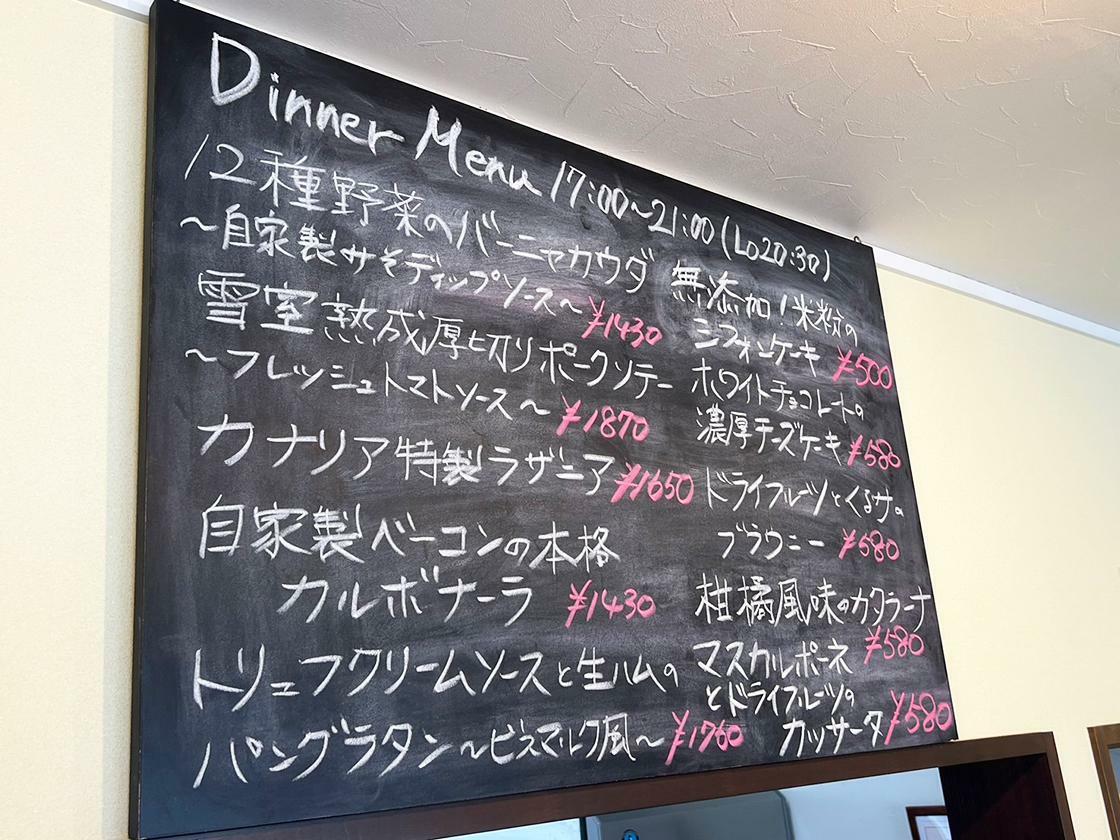 Dinner Menu 17:00~21:00 (Lo20:30)
12種野菜のバーニャカウダ
~自家製みそディップソース~ ¥1430
雪室熟成厚切りポークソテー
~フレッシュトマトソース~ ¥1870
カナリア特製ラザニア ¥1650
自家製ベーコンの本格
カルボナーラ ¥1430
トリュフクリームソースと生ハムの
パングラタン~ビスマルク風~ ¥1760
無添加!米粉の
シフォンケーキ ¥500
ホワイトチョコレートの
濃厚チーズケーキ ¥580
ドライフルーツとくるみの
ブラウニー ¥580
柑橘風味のカタラーナ
¥580
マスカルポーネ
とドライフルーツの
カッサータ ¥580